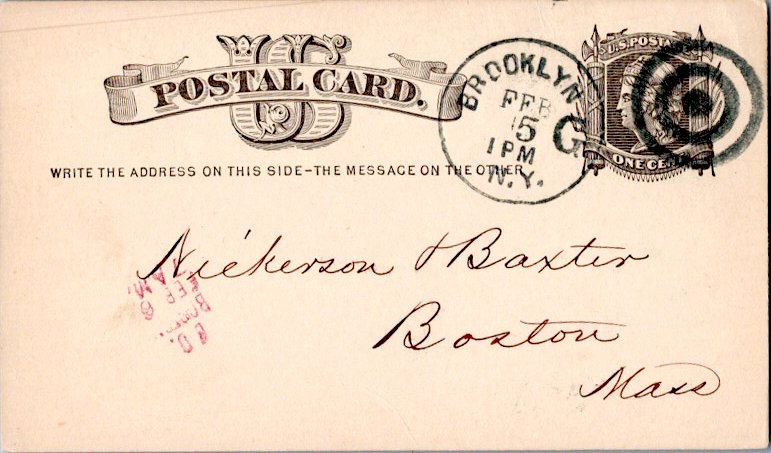 US
POSTAL CARD.
WRITE THE ADDRESS ON THIS SIDE-THE MESSAGE ON THE OTHER
BROOKLYN
FEB
5
1 PM
N.Y.
G
U.S. POSTAGE
ONE CENT
Nickerson & Baxter
Boston
Mass
FEB
6
AM